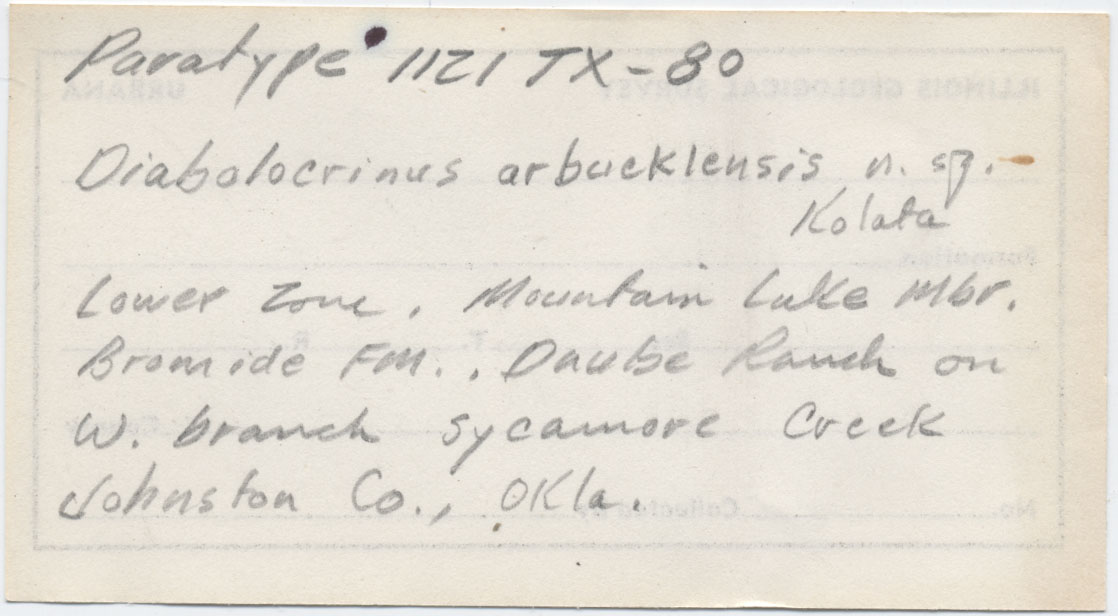 Paratype 1121 TX-80
Diabolocrinus arbucklensis n. sp.
Kolata
Lower zone, Mountain Lake Mbr.
Bromide FM., Daube Ranch on
W. branch Sycamore Creek
Johnston Co., Okla.
ILLINOIS GEOLOGICAL SURVEY URBANA
Formation
T. R.
County
No. Collected by